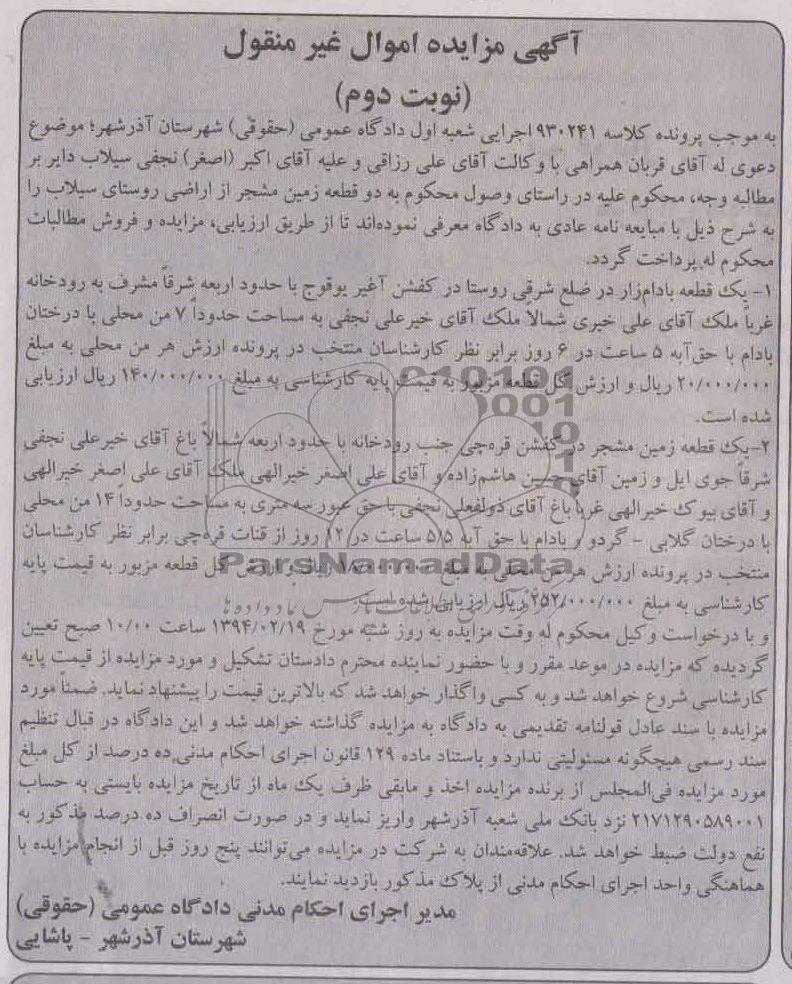 آگهی مزایده اموال غیر منقول
(نوبت دوم)
به موجب پرونده کلاسه ۹۳۰۲۴۱ اجرایی شعبه اول دادگاه عمومی (حقوقی) شهرستان آذرشهر؛ موضوع
دعوی له آقای قربان همراهی با وکالت آقای علی رزاقی و علیه آقای اکبر (اصغر) نجفی سیلاب دایر بر
مطالبه وجه، محکوم علیه در راستای وصول محکوم به دو قطعه زمین مشجر از اراضی روستای سیلاب را
به شرح ذیل با مبایعه نامه عادی به دادگاه معرفی نموده‌اند تا از طریق ارزیابی، مزایده و فروش مطالبات
محکوم له پرداخت گردد.
۱- یک قطعه بادام‌زار در ضلع شرقی روستا در کفشن آغیر یوقوج با حدود اربعه شرقاً مشرف به رودخانه
غرباً ملک آقای علی خیری شمالاً ملک آقای خیرعلی نجفی به مساحت حدوداً ۷ من محلی با درختان
بادام با حق‌آبه ۵ ساعت در ۶ روز برابر نظر کارشناسان منتخب در پرونده ارزش هر من محلی به مبلغ
۲۰/۰۰۰/۰۰۰ ریال و ارزش کل قطعه مزبور به قیمت پایه کارشناسی به مبلغ ۱۴۰/۰۰۰/۰۰۰ ریال ارزیابی
شده است.
۲-یک قطعه زمین مشجر در کفشن قره‌چی جنب رودخانه با حدود اربعه شمالاً باغ آقای خیرعلی نجفی
شرقاً جوی ایل و زمین آقای حسین هاشم‌زاده و آقای علی اصغر خیرالهی ملک آقای علی اصغر خیرالهی
و آقای بیوک خیرالهی غرباً باغ آقای ذولفعلی نجفی با حق عبور سه متری به مساحت حدوداً ۱۴ من محلی
با درختان گلابی - گردو و بادام با حق آبه ۵/۵ ساعت در ۱۲ روز از قنات قره‌چی برابر نظر کارشناسان
منتخب در پرونده ارزش هر من محلی به مبلغ ۱۸/۰۰۰/۰۰۰ ریال و ارزش کل قطعه مزبور به قیمت پایه
کارشناسی به مبلغ ۲۵۲/۰۰۰/۰۰۰ ریال ارزیابی شده است.
و با درخواست وکیل محکوم له وقت مزایده به روز شنبه مورخ ۱۳۹۴/۰۲/۱۹ ساعت ۱۰/۰۰ صبح تعیین
گردیده که مزایده در موعد مقرر و با حضور نماینده محترم دادستان تشکیل و مورد مزایده از قیمت پایه
کارشناسی شروع خواهد شد و به کسی واگذار خواهد شد که بالاترین قیمت را پیشنهاد نماید. ضمناً مورد
مزایده با سند عادل قولنامه تقدیمی به دادگاه به مزایده گذاشته خواهد شد و این دادگاه در قبال تنظیم
سند رسمی هیچگونه مسئولیتی ندارد و باستناد ماده ۱۲۹ قانون اجرای احکام مدنی ده درصد از کل مبلغ
مورد مزایده فی‌المجلس از برنده مزایده اخذ و مابقی ظرف یک ماه از تاریخ مزایده بایستی به حساب
۲۱۷۱۲۹۰۵۸۹۰۰۱ نزد بانک ملی شعبه آذرشهر واریز نماید و در صورت انصراف ده درصد مذکور به
نفع دولت ضبط خواهد شد. علاقه‌مندان به شرکت در مزایده می‌توانند پنج روز قبل از انجام مزایده با
هماهنگی واحد اجرای احکام مدنی از پلاک مذکور بازدید نمایند.
مدیر اجرای احکام مدنی دادگاه عمومی (حقوقی)
شهرستان آذرشهر - پاشایی
ParsNamadData